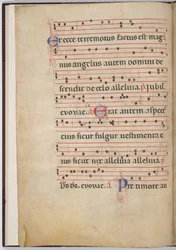 Et ecce terremotus factus est mag
nus angelus autem domini de
scendit de celo alleluia. p̄s Iubil.
evovae. a Erat autem aspect
eius sicut fulgur vestimenta e
ius sicut nix alleluia alleluia.
evovae. a Pre timore au